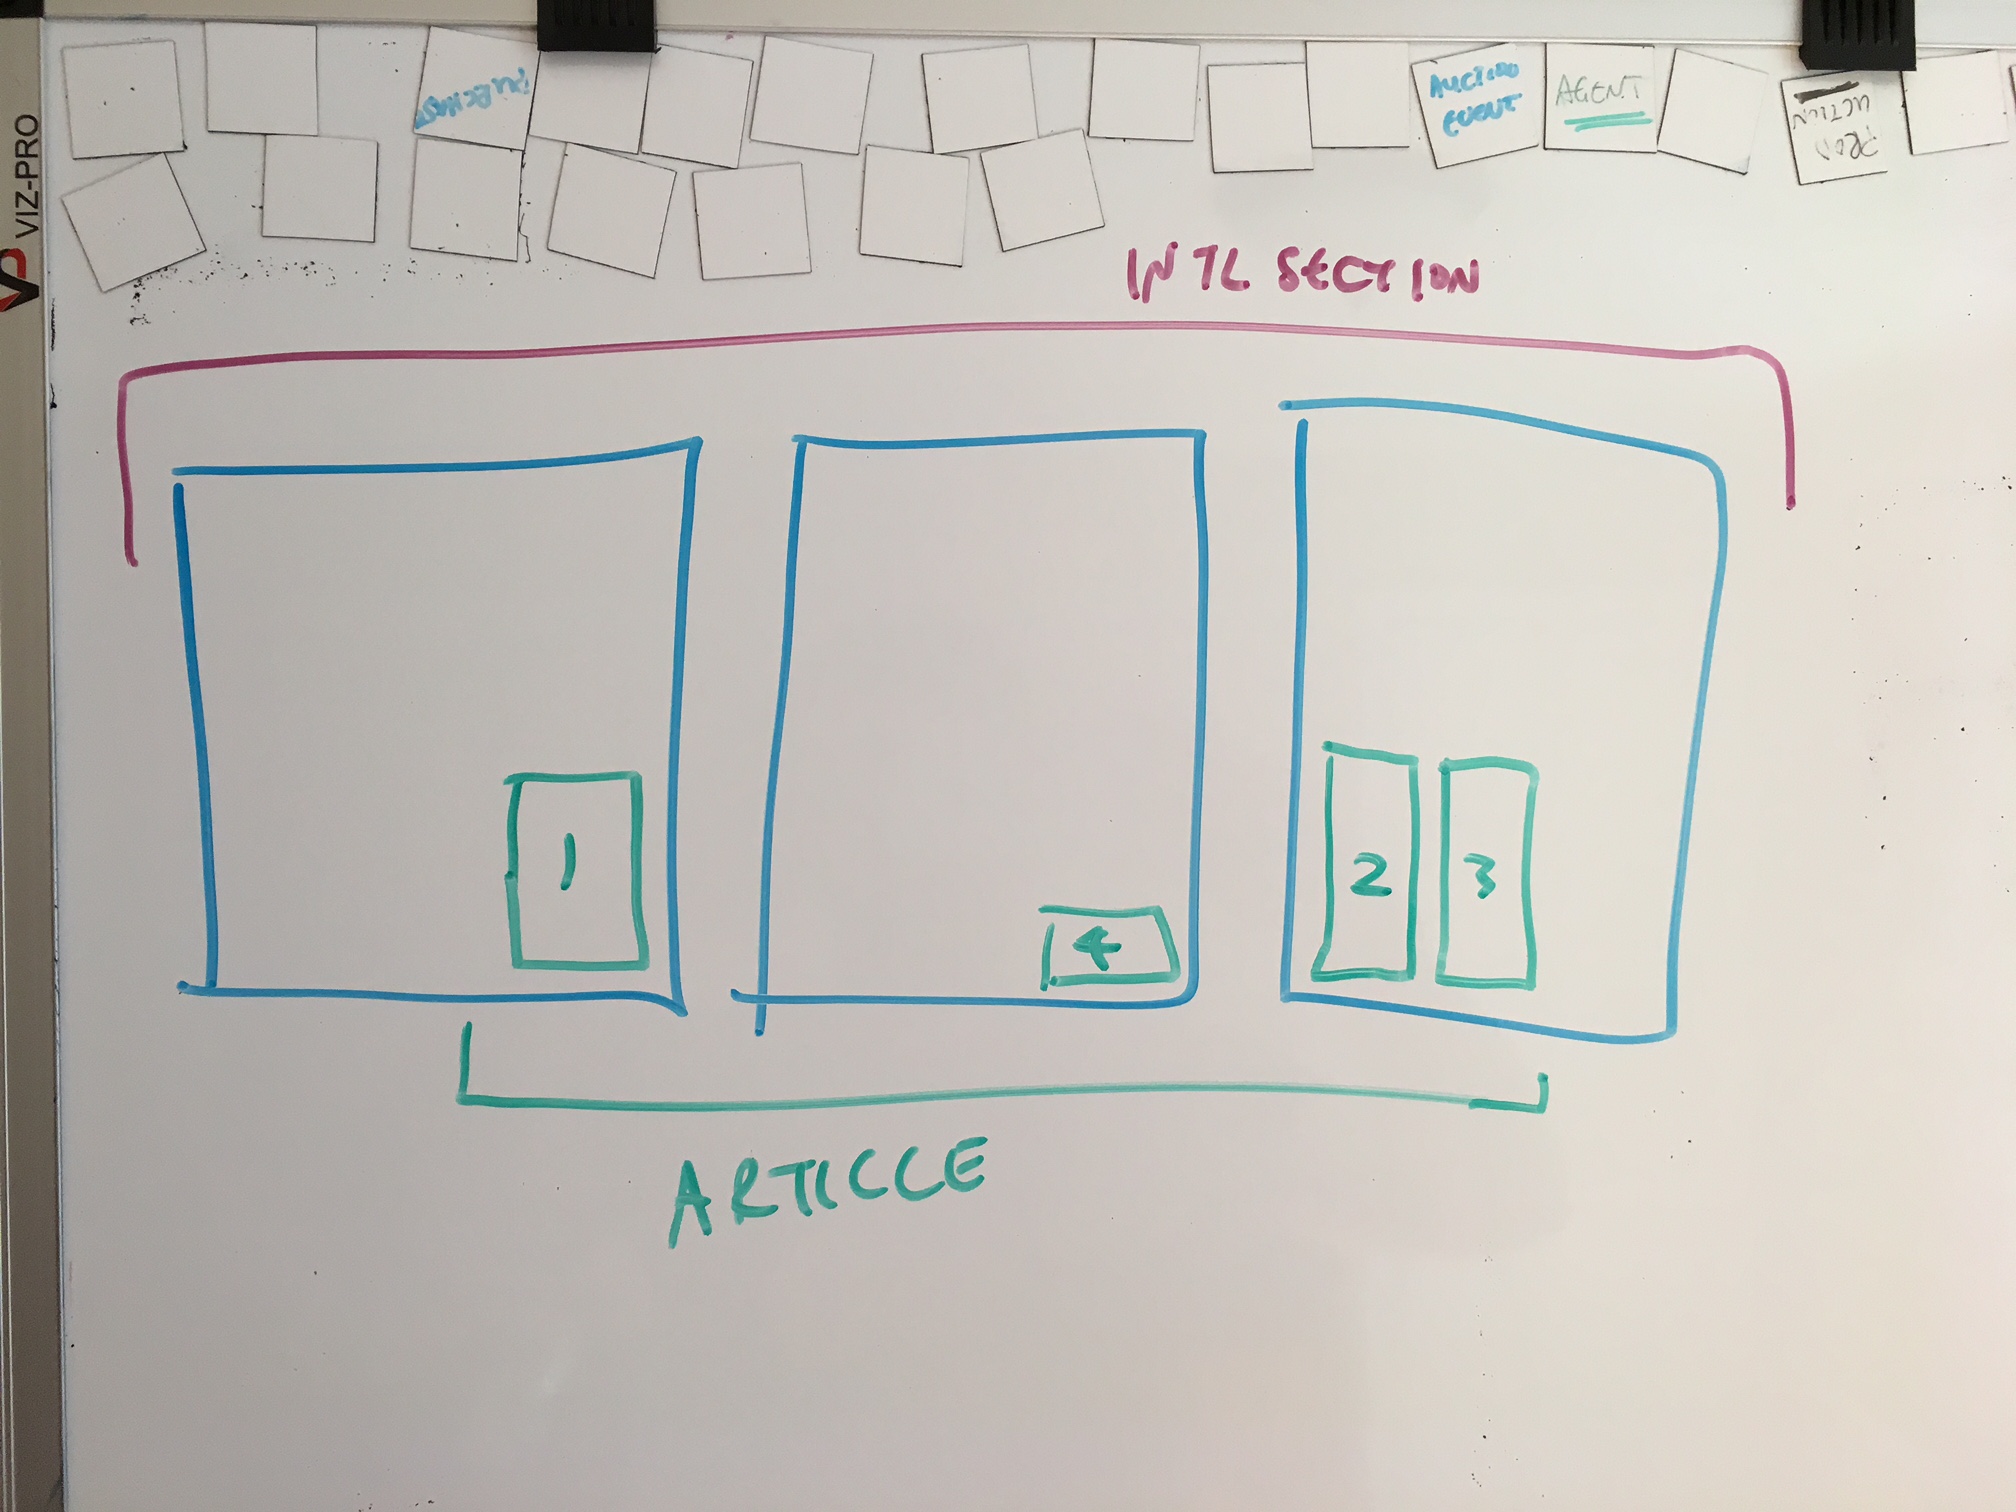 VIZ-PRO
PURCHASE
AUCTION
EVENT
AGENT
PROD
UCTION
INTL SECTION
1
4
2
3
ARTICLE